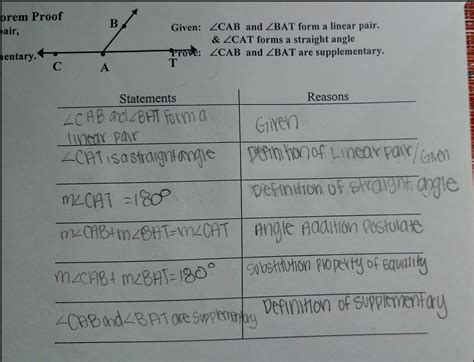 orem Proof
pair,
mentary.
B
C
A
T
Given: ∠CAB and ∠BAT form a linear pair.
& ∠CAT forms a straight angle
Prove: ∠CAB and ∠BAT are supplementary.
Statements
Reasons
∠CAB and ∠BAT form a
linear pair
Given
∠CAT is a straight angle
Definition of Linear pair/Given
m∠CAT = 180°
Definition of straight angle
m∠CAB + m∠BAT = m∠CAT
Angle Addition Postulate
m∠CAB + m∠BAT = 180°
Substitution Property of Equality
∠CAB and ∠BAT are supplementary
Definition of supplementary